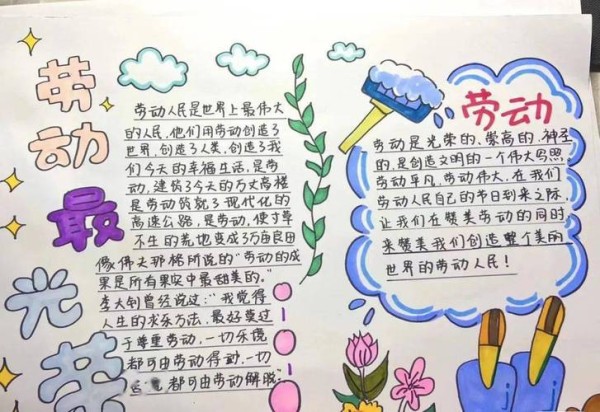 劳动最光荣
劳动人民是世界上最伟大
的人民,他们用劳动创造了
世界,创造了人类,创造了我
们今天的幸福生活,是劳
动,建筑了今天的万丈高楼
是劳动筑就了现代化的
高速公路,是劳动,使寸草
不生的荒地变成了万亩良田
像佛夫耶格所说的"劳动的成
果是所有果实中最甜美的。"
李大钊曾经说过:"我觉得
人生的求乐方法,最好莫过
于尊重劳动,一切乐境
都可由劳动得动,一切
都可由劳动解脱;
劳动
劳动是光荣的、崇高的、神圣
的,是创造文明的一个伟大写照,
劳动平凡,劳动伟大,在我们
劳动人民自己的节日到来之际,
让我们在赞美劳动的同时,
来赞美我们创造整个美丽
世界的劳动人民!